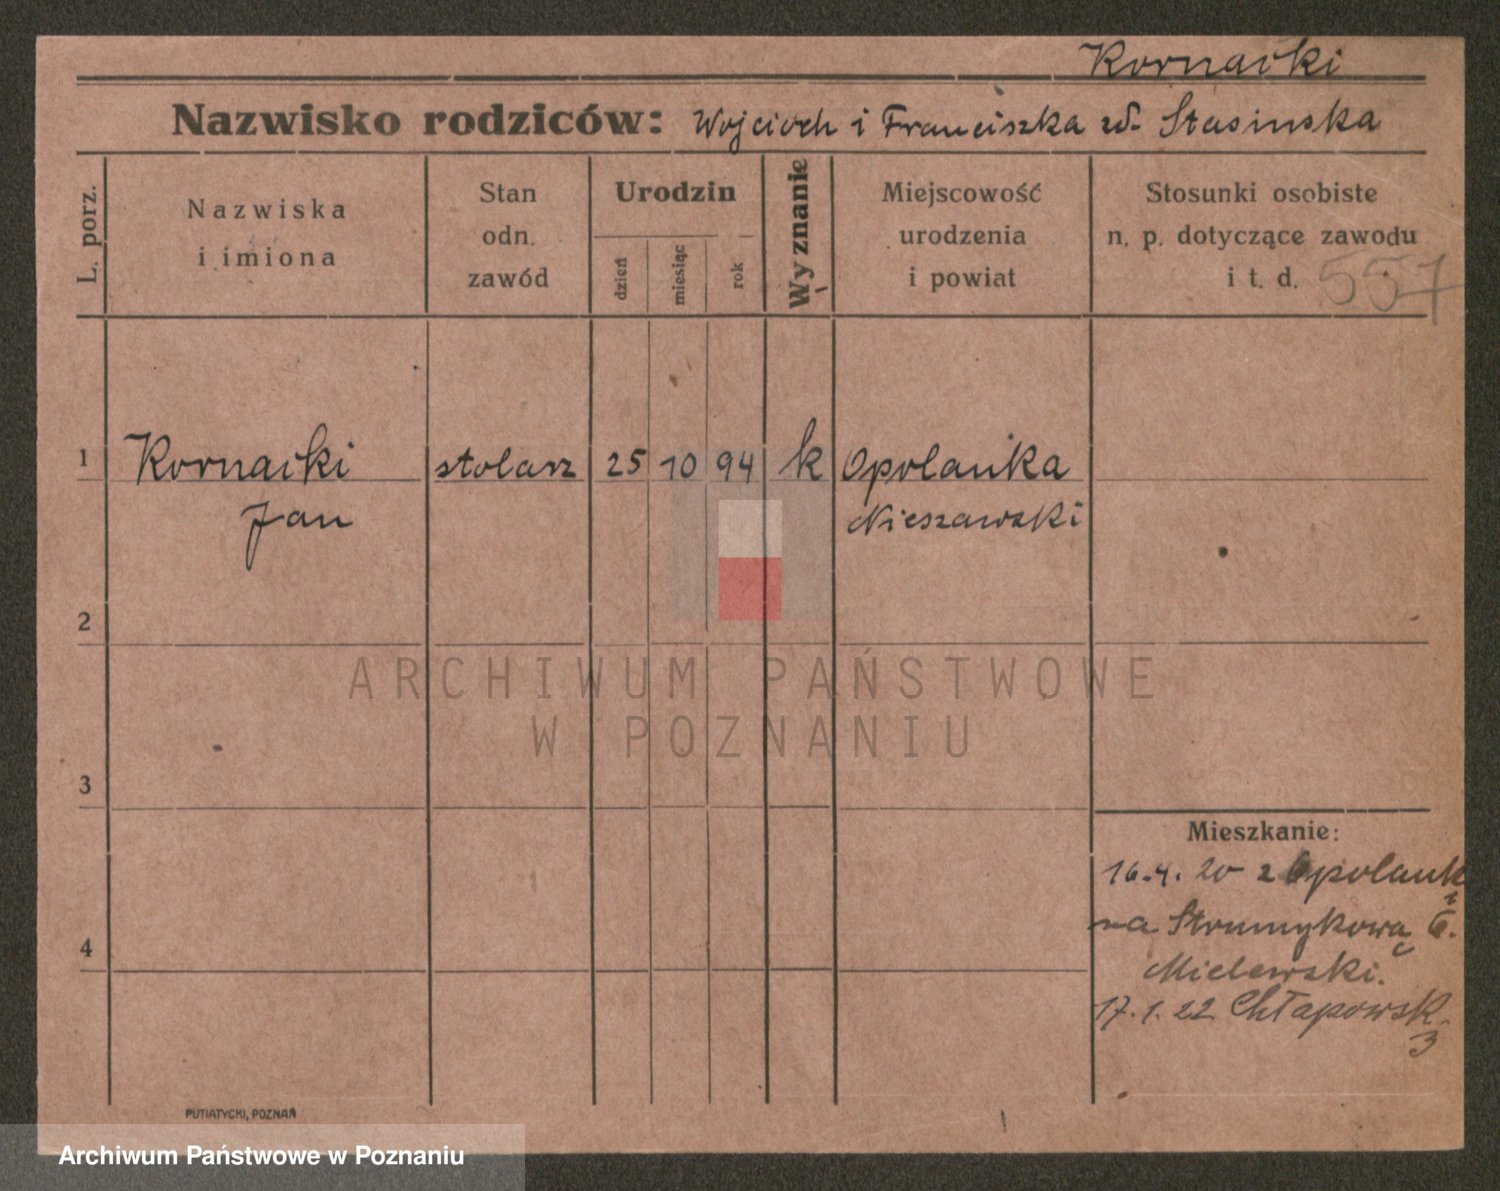 Kornacki
Nazwisko rodziców: Wojciech i Franciszka zd. Stasinska
L. porz.
Nazwiska
i imiona
Stan
odn.
zawód
Urodzin
dzień
miesiąc
rok
Wyznanie
Miejscowość
urodzenia
i powiat
Stosunki osobiste
n. p. dotyczące zawodu
i t. d. 557
1 Kornacki stolarz 25 10 94 k Opolanka
Jan Nieszawski
2
ARCHIWUM PAŃSTWOWE
W POZNANIU
3
Mieszkanie:
16.4. 20 z Opolank
na Strumykową 6.
4
Mielewski.
17.1.22 Chłapowsk.
3
PUTIATYCKI, POZNAŃ
Archiwum Państwowe w Poznaniu